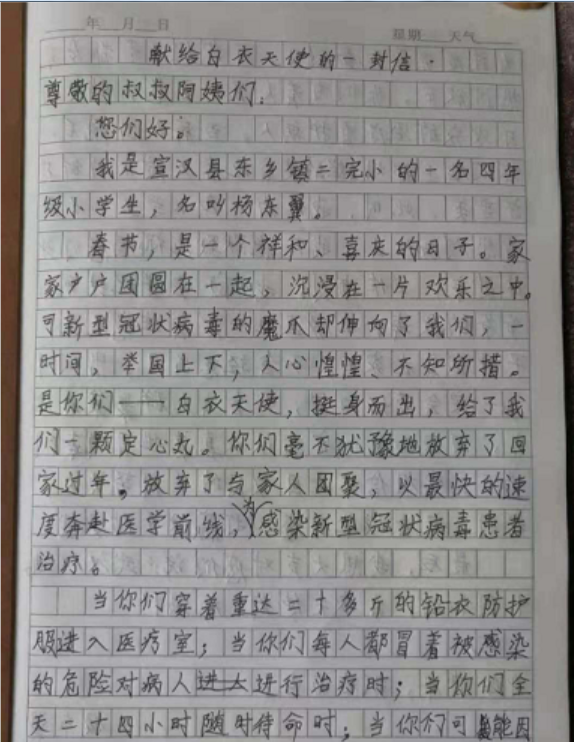 年 月 日 星期 天气
献给白衣天使的一封信.
尊敬的叔叔阿姨们:
您们好!
我是宣汉县东乡镇二完小的一名四年
级小学生，名叫杨东翼。
春节，是一个祥和、喜庆的日子。家
家户户团圆在一起，沉浸在一片欢乐之中。
可新型冠状病毒的魔爪却伸向了我们，一
时间，举国上下，人心惶惶、不知所措。
是你们——白衣天使，挺身而出，给了我
们一颗定心丸。你们毫不犹豫地放弃了回
家过年。放弃了与家人团聚，以最快的速
度奔赴医学前线，为感染新型冠状病毒患者
治疗。
当你们穿着重达二十多斤的铅衣防护
服进入医疗室；当你们每人都冒着被感染
的危险对病人进入进行治疗时；当你们全
天二十四小时随时待命时；当你们可能因